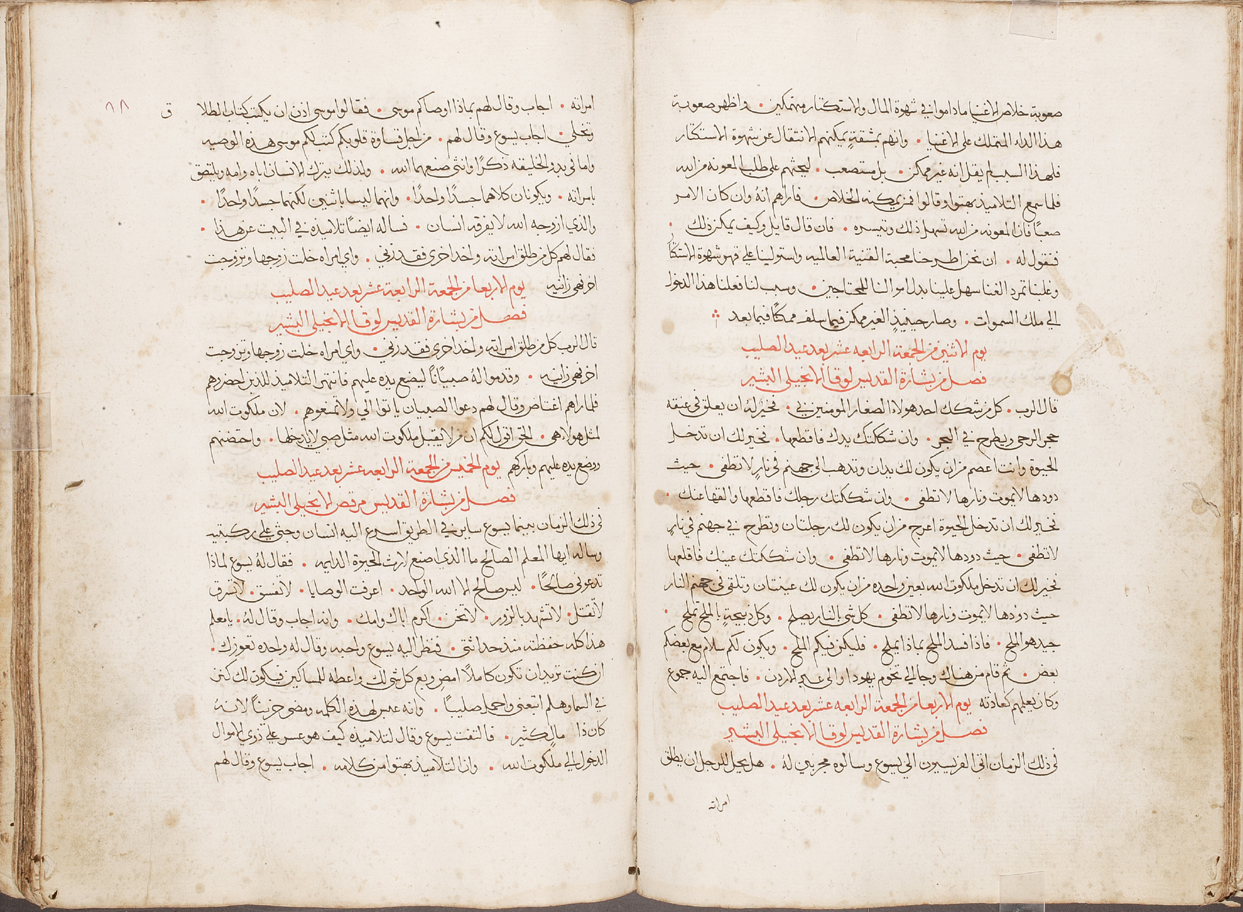 صعوبة خلاص الاغنيا ماداموا في شهوة المال والاستكثار منهمكين • واظهر صعوبة
هذا الداء المتملك على الاغنيا • وانهم بمشقةٍ يمكنهم الانتقال عن شهوة الاستكثار
فلهذا السبب لم يقل انه غير ممكن • بل مستصعب • ليحثهم على طلب المعونه من الله
فلما سمع التلاميذ بهتوا وقالوا فمن يمكنه الخلاص • فاراهم انهُ وان كان الامر
صعباً فان المعونه من الله تسهل ذلك وتيسره • فان قال قايل وكيف يمكن ذلك •
فنقول له • ان نحن اطرحنا محبة القنية العالميه واستولينا على قهر شهوة
وغلبنا تمرد الغنا سهل علينا بدل اموالنا للمحتاجين • وسبب لنا فعلنا هذا الدخول
الى ملك السموات • وصار حينيذٍ الغير ممكن فيما سلف ممكناً فيما بعد
يوم الاثنين من الجمعة الرابعه عشر بعد عيد الصليب
فصل من بشارة القديس لوقا الانجيلي البشير
قال الرب • كل من شكك احد هولاء الصغار المومنين بي • فخير لهُ ان يعلق في عنقه
حجر الرحى ويطرح في البحر • وان شككتك يدك فاقطعها • فخير لك ان تدخل
الحيوة وانت اعسم من ان يكون لك يدان وتذهب الى جهنم في نارٍ لا تطفى • حيث
دودها لا يموت ونارها لا تطفى • وان شككتك رجلك فاقطعها والقها عنك •
فخير لك ان تدخل الحيوة اعرج من ان يكون لك رجلتان وتطرح في جهنم في نارٍ
لا تطفى • حيث دودها لا يموت ونارها لا تطفى • وان شككتك عينك فاقلعها
فخير لك ان تدخل ملكوت الله بعين واحده من ان يكون لك عينتان وتلقى في جهنم النار
حيث دودها لا يموت ونارها لا تطفى • كل شى بالنار يصلح • وكل ذبيحة بالملح تملح •
جيد هو الملح • فاذا فسد الملح بماذا يملح • فليكن فيكم الملح • ويكون لكم سلام مع بعضكم
بعض • ثم قام من هناك وجا الى تخوم يهودا والى عبر الاردن • فاجتمع اليه جموع
وكان يعلمهم كعادته يوم الاربعا من الجمعة الرابعه عشر بعد عيد الصليب
فصل من بشارة القديس لوقا الانجيلي البشير
في ذلك الزمان اتى الفريسيون الى يسوع وسالوه مجربين لهُ • هل يحل للرجل ان يطلق
امراته
٩٨
ق
امراته • اجاب وقال لهم بماذا اوصاكم موسى • فقالوا موسى اذن ان يكتب كتاب الطلا
وتخلى • اجاب يسوع وقال لهم • من اجل قساوة قلوبكم كتب لكم موسى هذه الوصيه
واما في بدو الخليقه ذكراً وانثى صنعهما الله • ولذلك يترك الانسان اباه وامه ويلتصق
بامراته • ويكونان كلاهما جسداً واحداً • وانهما ليسا باثنين لكنهما جسداً واحداً •
والذي ازوجه الله لا يفرقه انسان • فساله ايضاً تلاميذه في البيت عن هذا •
فقال لهم كل من طلق امراته واخذ اخرى فقد زنى • واي امراه خلت زوجها وتزوجت
اخر فهي زانيه يوم الاربعا من الجمعة الرابعة عشر بعد عيد الصليب
فصل من بشارة القديس لوقا الانجيلي البشير
قال الرب كل من طلق امراته واخذ اخرى فقد زنى • واي امراه خلت زوجها وتزوجت
اخر فهي زانيه • وقدموا لهُ صبياناً ليضع يده عليهم فانتهر التلاميذ للذين احضروهم
فلما راهم اغتاض وقال لهم دعوا الصبيان ياتوا الي ولا تمنعوهم • لان ملكوت الله
لمثل هولاء هي • الحق اقول لكم ان من لا يقبل ملكوت الله مثل صبي لا يدخلها • واحتضنهم
ووضع يده عليهم وباركهم يوم الخميس من الجمعة الرابعة عشر بعد عيد الصليب
فصل من بشارة القديس مرقص الانجيلي البشير
في ذلك الزمان بينما يسوع ساير في الطريق اسرع اليه انسان وجثى على ركبتيه
وساله ايها المعلم الصالح ما الذي اصنع لارث الحيوة الدايمه • فقال لهُ يسوع لماذا
تدعوني صالحاً • ليس صالح الا الله الوحد • اعرفت الوصايا • لا تفسق • لا تسرق
لا تقتل • لا تشهد بالزور • لا تخن • اكرم اباك وامك • وانه اجاب وقال لهُ • يا معلم
هذا كله حفظته منذ حداثتي • فنظر اليه يسوع واحبه وقال له واحده تعوزك •
ان كنت تريد ان تكون كاملاً امضِ وبع كل شى لك واعطه للمساكين فيكون لك كنز
في السما وهلم اتبعني واحمل صليباً • وانه عبس لهذه الكلمه ومضى حزيناً لانهُ
كان ذا مالٍ كثير • فالتفت يسوع وقال لتلاميذه كيف هو عسر على ذوي الاموال
الدخول الى ملكوت الله • وان التلاميذ بهتوا من كلامه • اجاب يسوع وقال لهم